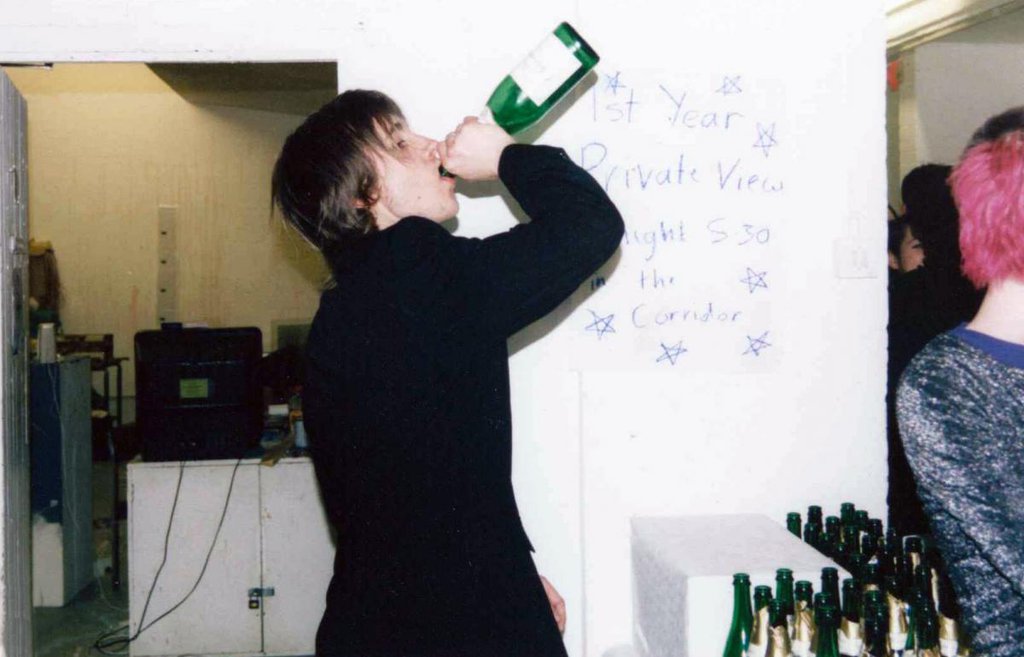 1st Year
Private View
5 30
in the
Corridor